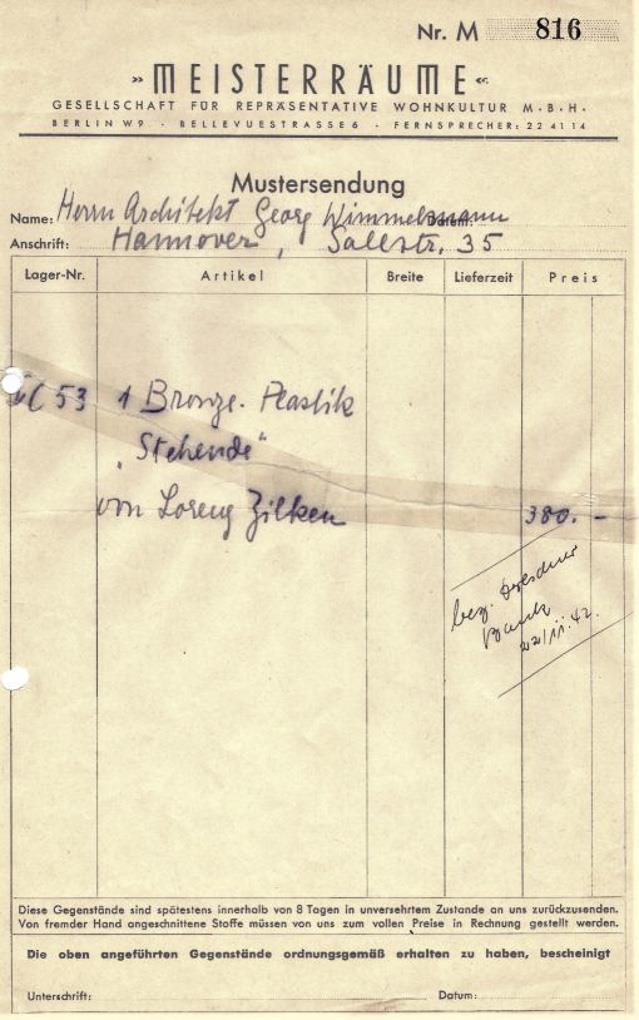 Nr. M 816
»MEISTERRÄUME«
GESELLSCHAFT FÜR REPRÄSENTATIVE WOHNKULTUR M·B·H·
BERLIN W9 · BELLEVUESTRASSE 6 · FERNSPRECHER: 22 41 14
Mustersendung
Name: Herrn Architekt Georg Wimmelmann Datum:
Anschrift: Hannover, Sallstr. 35
Lager-Nr. Artikel Breite Lieferzeit Preis
53 1 Bronze-Plastik
„Stehende"
von Lorenz Zilken 380.–
bez. Dresdner
Bank
22/11.42.
Diese Gegenstände sind spätestens innerhalb von 8 Tagen in unversehrtem Zustande an uns zurückzusenden.
Von fremder Hand angeschnittene Stoffe müssen von uns zum vollen Preise in Rechnung gestellt werden.
Die oben angeführten Gegenstände ordnungsgemäß erhalten zu haben, bescheinigt
Unterschrift: Datum: